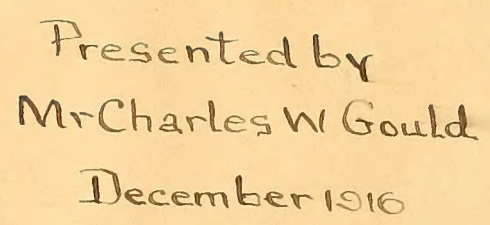 Presented by
Mr Charles W Gould
December 1916